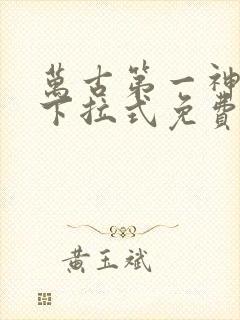 萬古第一神
下拉式免費
黃玉斌